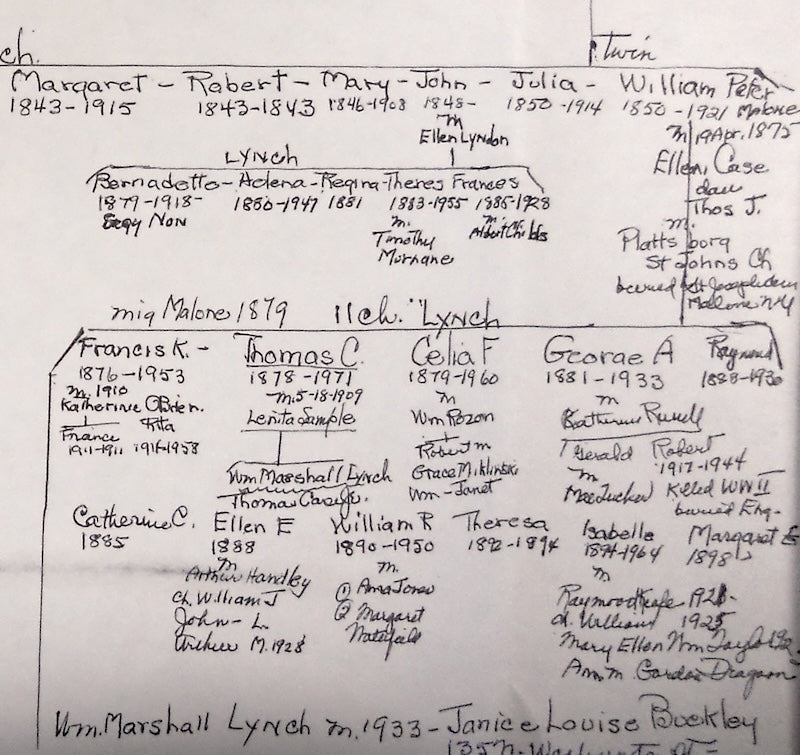 ch.
twin
Margaret - Robert - Mary - John - Julia - William Peter
1843-1915 1843-1843 1846-1908 1848- 1850-1914 1850-1921 Malone
m m 19 Apr. 1875
Ellen Lyndon Ellen Case
LYNCH dau
Bernadette - Adena - Regina - Theres Frances Thos J.
1879-1918- 1880-1947 1881 1883-1955 1886-1928 m.
Non m. m. Platts borg
Timothy Albert St Johns Ch
Murnane buried St Joseph
Malone NY
mig Malone 1879 11 ch. "Lynch
Francis K. - Thomas C. Celia F George A Raymond
1876-1953 1878-1971 1879-1960 1881-1933
m. 1910 m. 5-18-1909 m m
Katherine O'Brien. Lenita Sample Wm Rozon Katherine
France Rita Robert m Gerald Robert
1911-1911 1914-1958 Wm Marshall Lynch Grace Miklinski m 1917-1944
Thomas Wm - Janet Mae Tucker Killed WW II
buried Eng.
Catherine C. Ellen E William R Theresa Isabelle Margaret E
1885 1888 1890-1950 1892-1894 1894-1964 1898
m m. m
Arthur Handley ① Ama Jones Raymond
ch. William J ② Margaret ch. William 1925
John - L. Mary Ellen Wm Taylor
M. 1928 Ann m. Gordon
Wm. Marshall Lynch m. 1933 - Janice Louise Buckley
135 N. Washington St